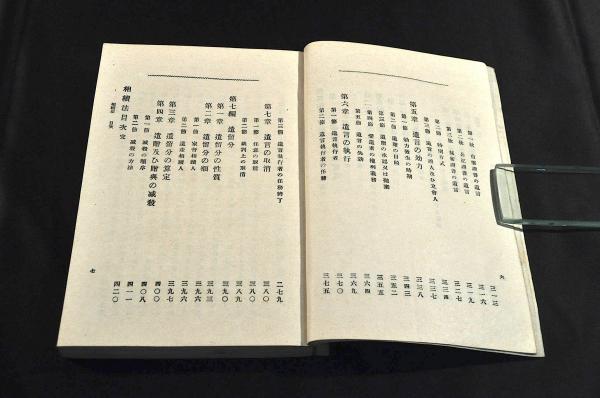 第一款 自筆證書の遺言 三一三
第二款 公正證書の遺言 三一六
第三款 祕密證書の遺言 三一九
第二項 特別方式 三二七
第三節 遺言の證人及び立會人 三三四
第五章 遺言の効力 三三八
第一節 効力發生の時期 三四三
第二節 遺贈の目的 三五二
第三節 遺贈の承認又は抛棄 三五五
第四節 受遺者の權利義務 三六四
第五節 遺言の無効 三六九
第六章 遺言の執行 三七〇
第一節 遺言執行者 三七〇
第二節 遺言執行者の任務 三七五
六
第三節 遺言執行者の任務終了 三七九
第七章 遺言の取消 三八〇
第一節 任意の取消 三八〇
第二節 裁判上の取消 三八九
第七編 遺留分 三九〇
第一章 遺留分の性質 三九〇
第二章 遺留分の額 三九三
第一節 家督相續人 三九六
第二節 遺産相續人 三九六
第三章 遺留分の算定 三九七
第四章 遺贈及び贈與の減殺 四〇〇
第一節 減殺の順序 四〇八
第二節 減殺の方法 四一一
相續法目次 完 四二〇
相續法 目次
七